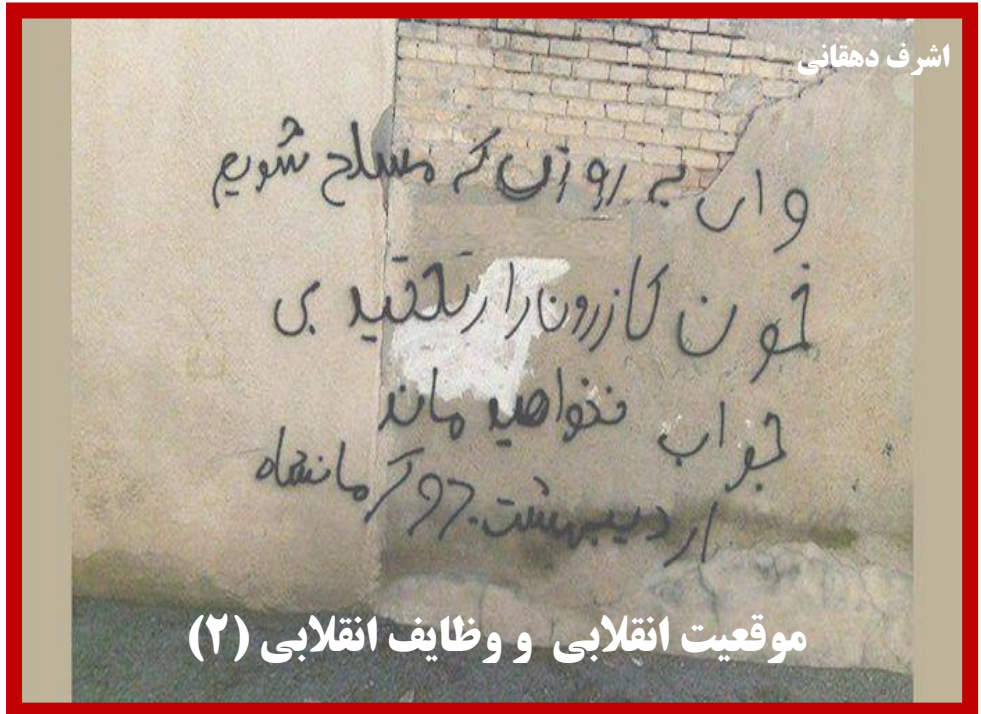 اشرف دهقانی
وای به روزی که مسلح شویم
خون کازرون را ریختید بی
جواب نخواهید ماند
اردیبهشت ۹۷ کرمانشاه
موقعیت انقلابی و وظایف انقلابی (۲)